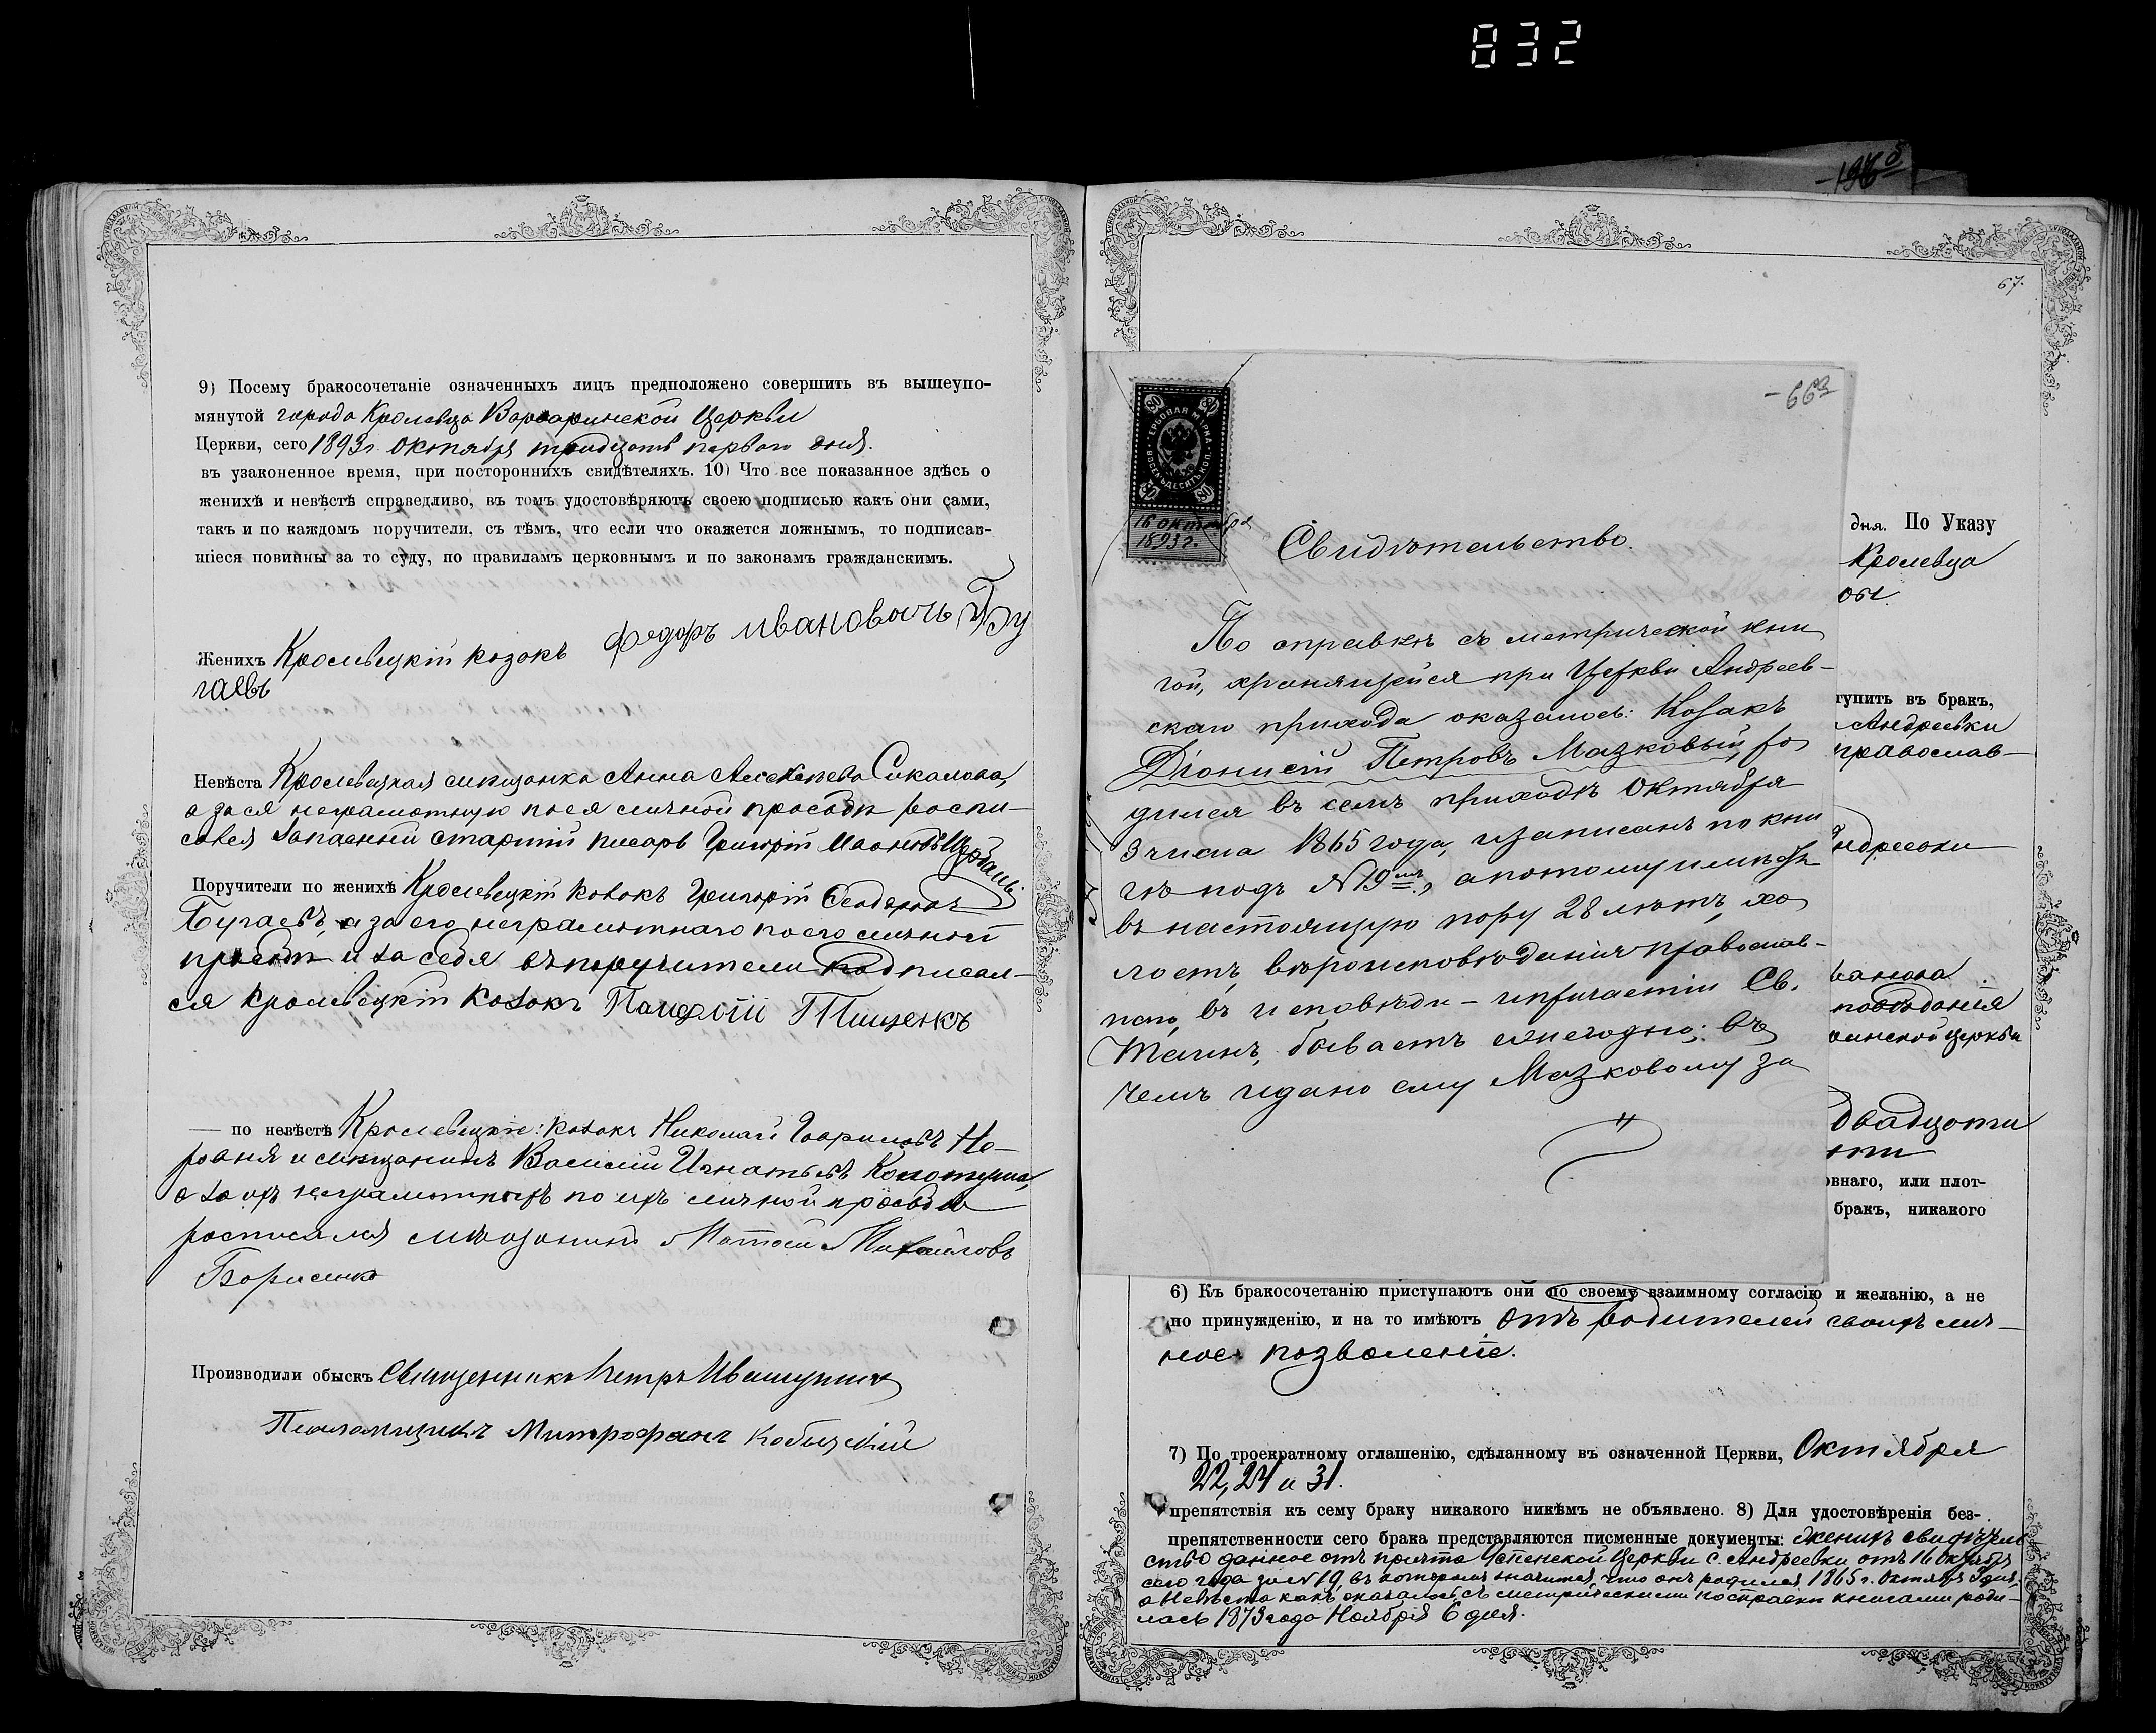 832
-196
9) Посему бракосочетаніе означенныхъ лицъ предположено совершить въ вышеупо-
мянутой города Кролевца Варваринской Церкви
Церкви, сего 1893 г. Октября тридцать перваго дня.
въ узаконенное время, при постороннихъ свидѣтеляхъ. 10) Что все показанное здѣсь о
женихѣ и невѣстѣ справедливо, въ томъ удостовѣряютъ своею подписью какъ они сами,
такъ и по каждомъ поручители, съ тѣмъ, что если что окажется ложнымъ, то подписав-
шіеся повинны за то суду, по правиламъ церковнымъ и по законамъ гражданскимъ.
Женихъ Кролевецкій козакъ Федоръ Ивановичъ Бу
гаевъ
Невѣста Кролевецкая мѣщанка Анна Алексѣева Сикалова,
а за ея неграмотную по ея личной просьбѣ роспи-
сался Запасный старшій писарь Григорій
Поручители по женихѣ Кролевецкій козакъ Григорій
Бугаевъ, а за его неграмотнаго по его личной
просьбѣ и за себя въ поручители подписал-
ся кролевецкій козакъ Тищенкъ
— по невѣстѣ Кролевецкіе: козакъ Николай Гавриловъ Не-
ровня и мѣщанинъ Василій Игнатьевъ
а за ихъ неграмотныхъ по ихъ личной просьбѣ
росписался мѣщанинъ Матвей Михайловъ
Борисенко
Производили обыскъ Священникъ Петръ
Псаломщикъ Митрофанъ Кобыжскій
67.
-663
ГЕРБОВАЯ МАРКА
ВОСЕМЬДЕСЯТЪ КОП.
80 80
80 80
16 октября
1893 г.
Свидѣтельство.
По справкѣ съ метрической кни
гой, хранящейся при Церкви Андреев-
скаго прихода оказалось: Козакъ
Діонисій Петровъ Мазковый, ро
дился въ семъ приходѣ Октября
3 числа 1865 года, и записанъ по кни
гѣ подъ № 19мъ, а потому имѣетъ
въ настоящую пору 28 лѣтъ, хо
лостъ, вѣроисповѣданія православ-
наго, въ исповѣди – и причастіи Св.
Таинъ, бываетъ ежегодно; въ
чемъ и дано ему Мазковому за
дня. По Указу
Кролевца
тупить въ бракъ,
Андреевки
православ-
ндреевки
ванова
повѣданія
ринской церкви
двадцати
овнаго, или плот-
бракъ, никакого
6) Къ бракосочетанію приступаютъ они по своему взаимному согласію и желанію, а не
по принужденію, и на то имѣютъ отъ родителей своихъ лич-
ное позволеніе.
7) По троекратному оглашенію, сдѣланному въ означенной Церкви, Октября
22, 24 и 31.
препятствія къ сему браку никакого никѣмъ не объявлено. 8) Для удостовѣренія без-
препятственности сего брака представляются писменные документы: женихъ свидѣтель
ство данное отъ причта Успенской Церкви с. Андреевки отъ 16 Октября
сего года за № 19, въ которомъ значится что онъ родился 1865 г. Октября 3 дня,
а Невѣста какъ оказалось съ метрическими по справкѣ книгами роди-
лась 1873 года Ноября 6 дня.